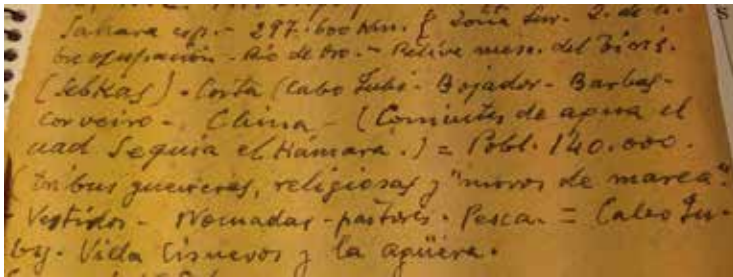 Sahara esp.- 297.600 Km. { Zona Sur. 2. de la
ocupación - Río de Oro. - Relieve mese. del Tiris.
(Sebkas). Costa (Cabo Jubi - Bojador - Barbas -
Corveiro -. Clima - (Corrientes de agua el
uad Seguia el Hámara.) = Pobl. 140.000.
(tribus guerreras, religiosas y "moros de marea".
Vestidos - Nomadas - pastores. Pesca. = Cabo Ju-
by. Villa Cisneros y la agüera.